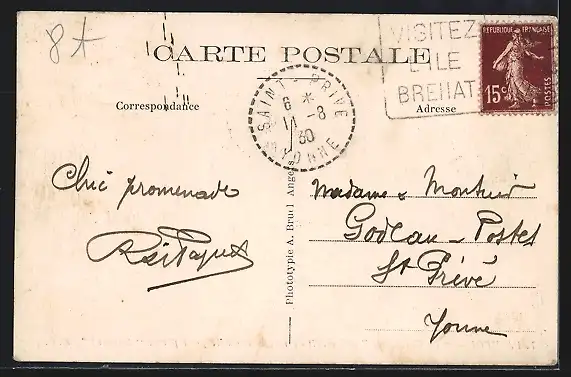 8
CARTE POSTALE
VISITEZ
L'ILE
BREHAT
REPUBLIQUE FRANÇAISE
15c
POSTES
Correspondance
Adresse
SAINT-PRIVÉ
6 *
11 -8
30
YONNE
Chic promenade
Madame & Monsieur
Godeau - Postes
St Privé
Yonne
Phototypie A. Bruel Angers